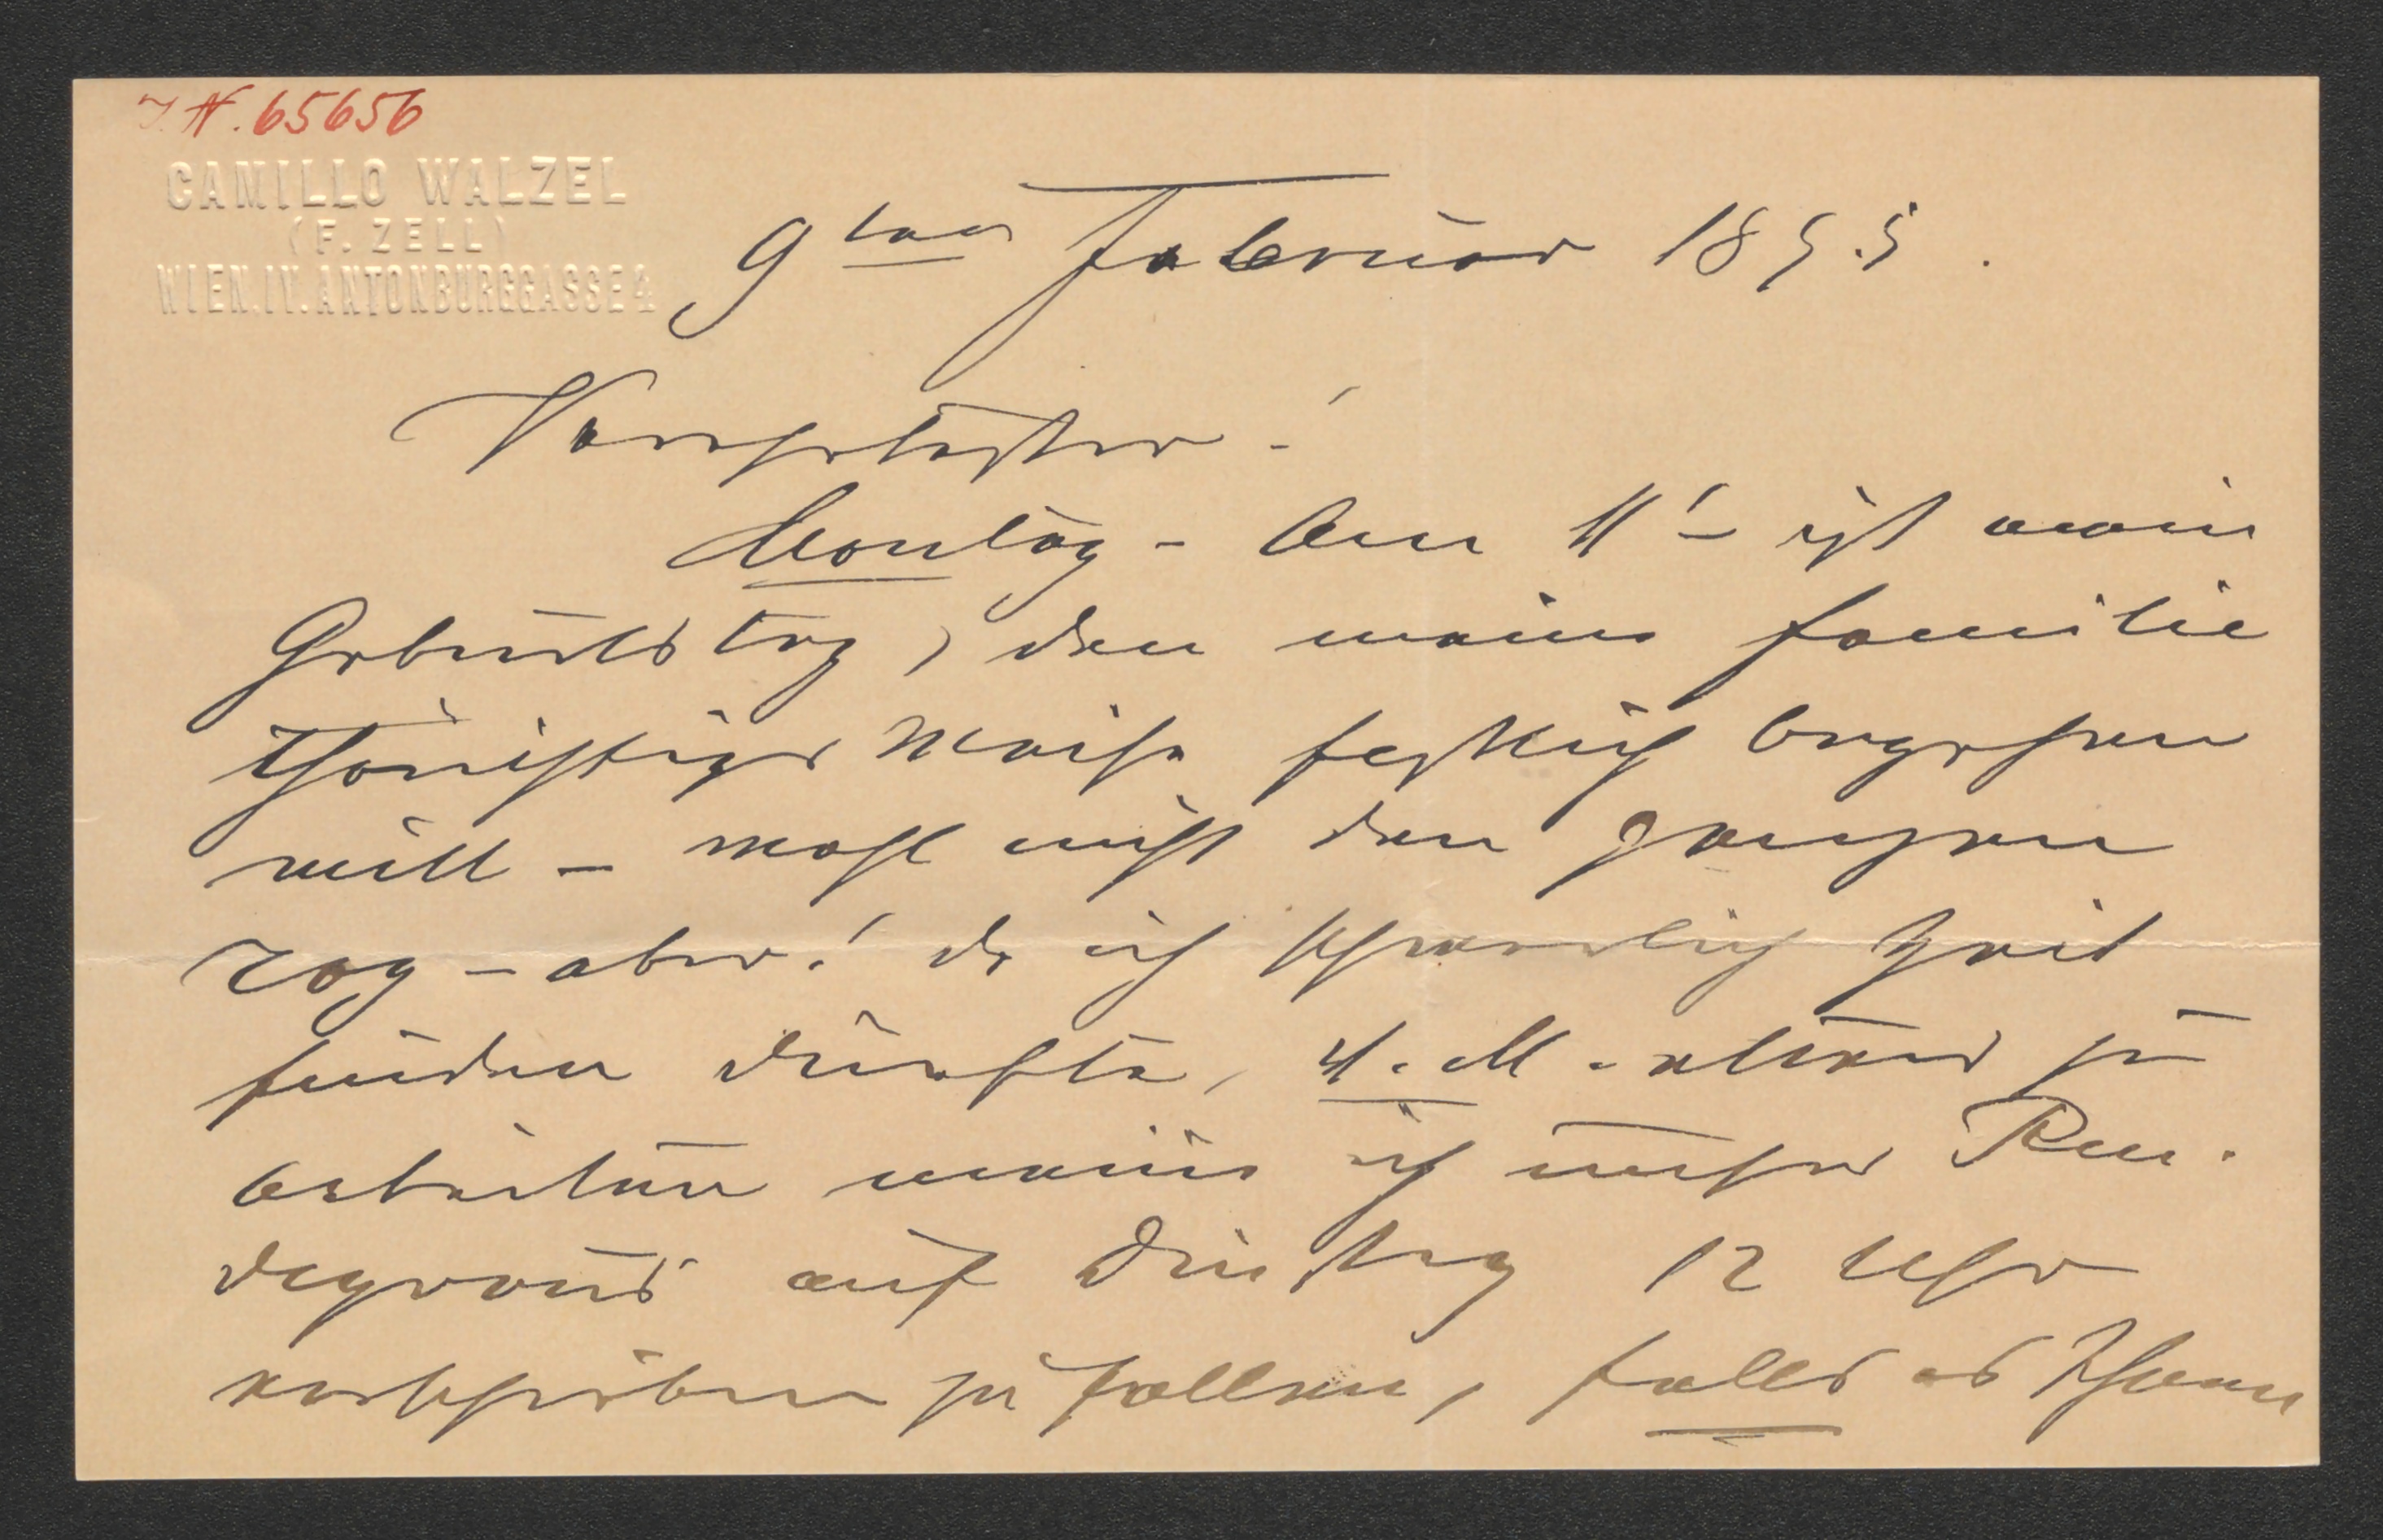 I. N. 65656
CAMILLO WALZEL
(F. ZELL)
WIEN. IV. ANTONBURGGASSE 4.
9ten Februar 1895.
Verehrtester!
Montag – Am 11' – ist mein
Geburtstag, den meine Familie
thörichtiger Weise festlich begehen
will – wohl nicht den ganzen
Tag – aber! da ich schwerlich Zeit
finden dürfte, etwas zu
arbeiten meine ich unser Ren-
dezvous auf Dinstag 12 Uhr
verschieben zu sollen, falls es Ihnen